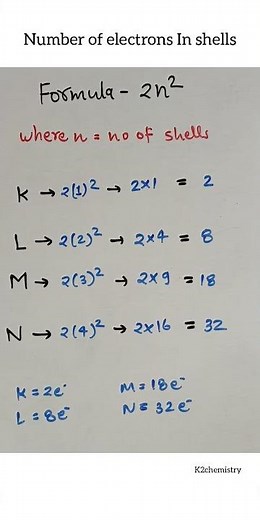 Number of electrons In shells
Formula - 2n²
where n = no of shells
K → 2(1)² → 2x1 = 2
L → 2(2)² → 2x4 = 8
M → 2(3)² → 2x9 = 18
N → 2(4)² → 2x16 = 32
K = 2e⁻ M = 18e⁻
L = 8e⁻ N = 32e⁻
K2chemistry